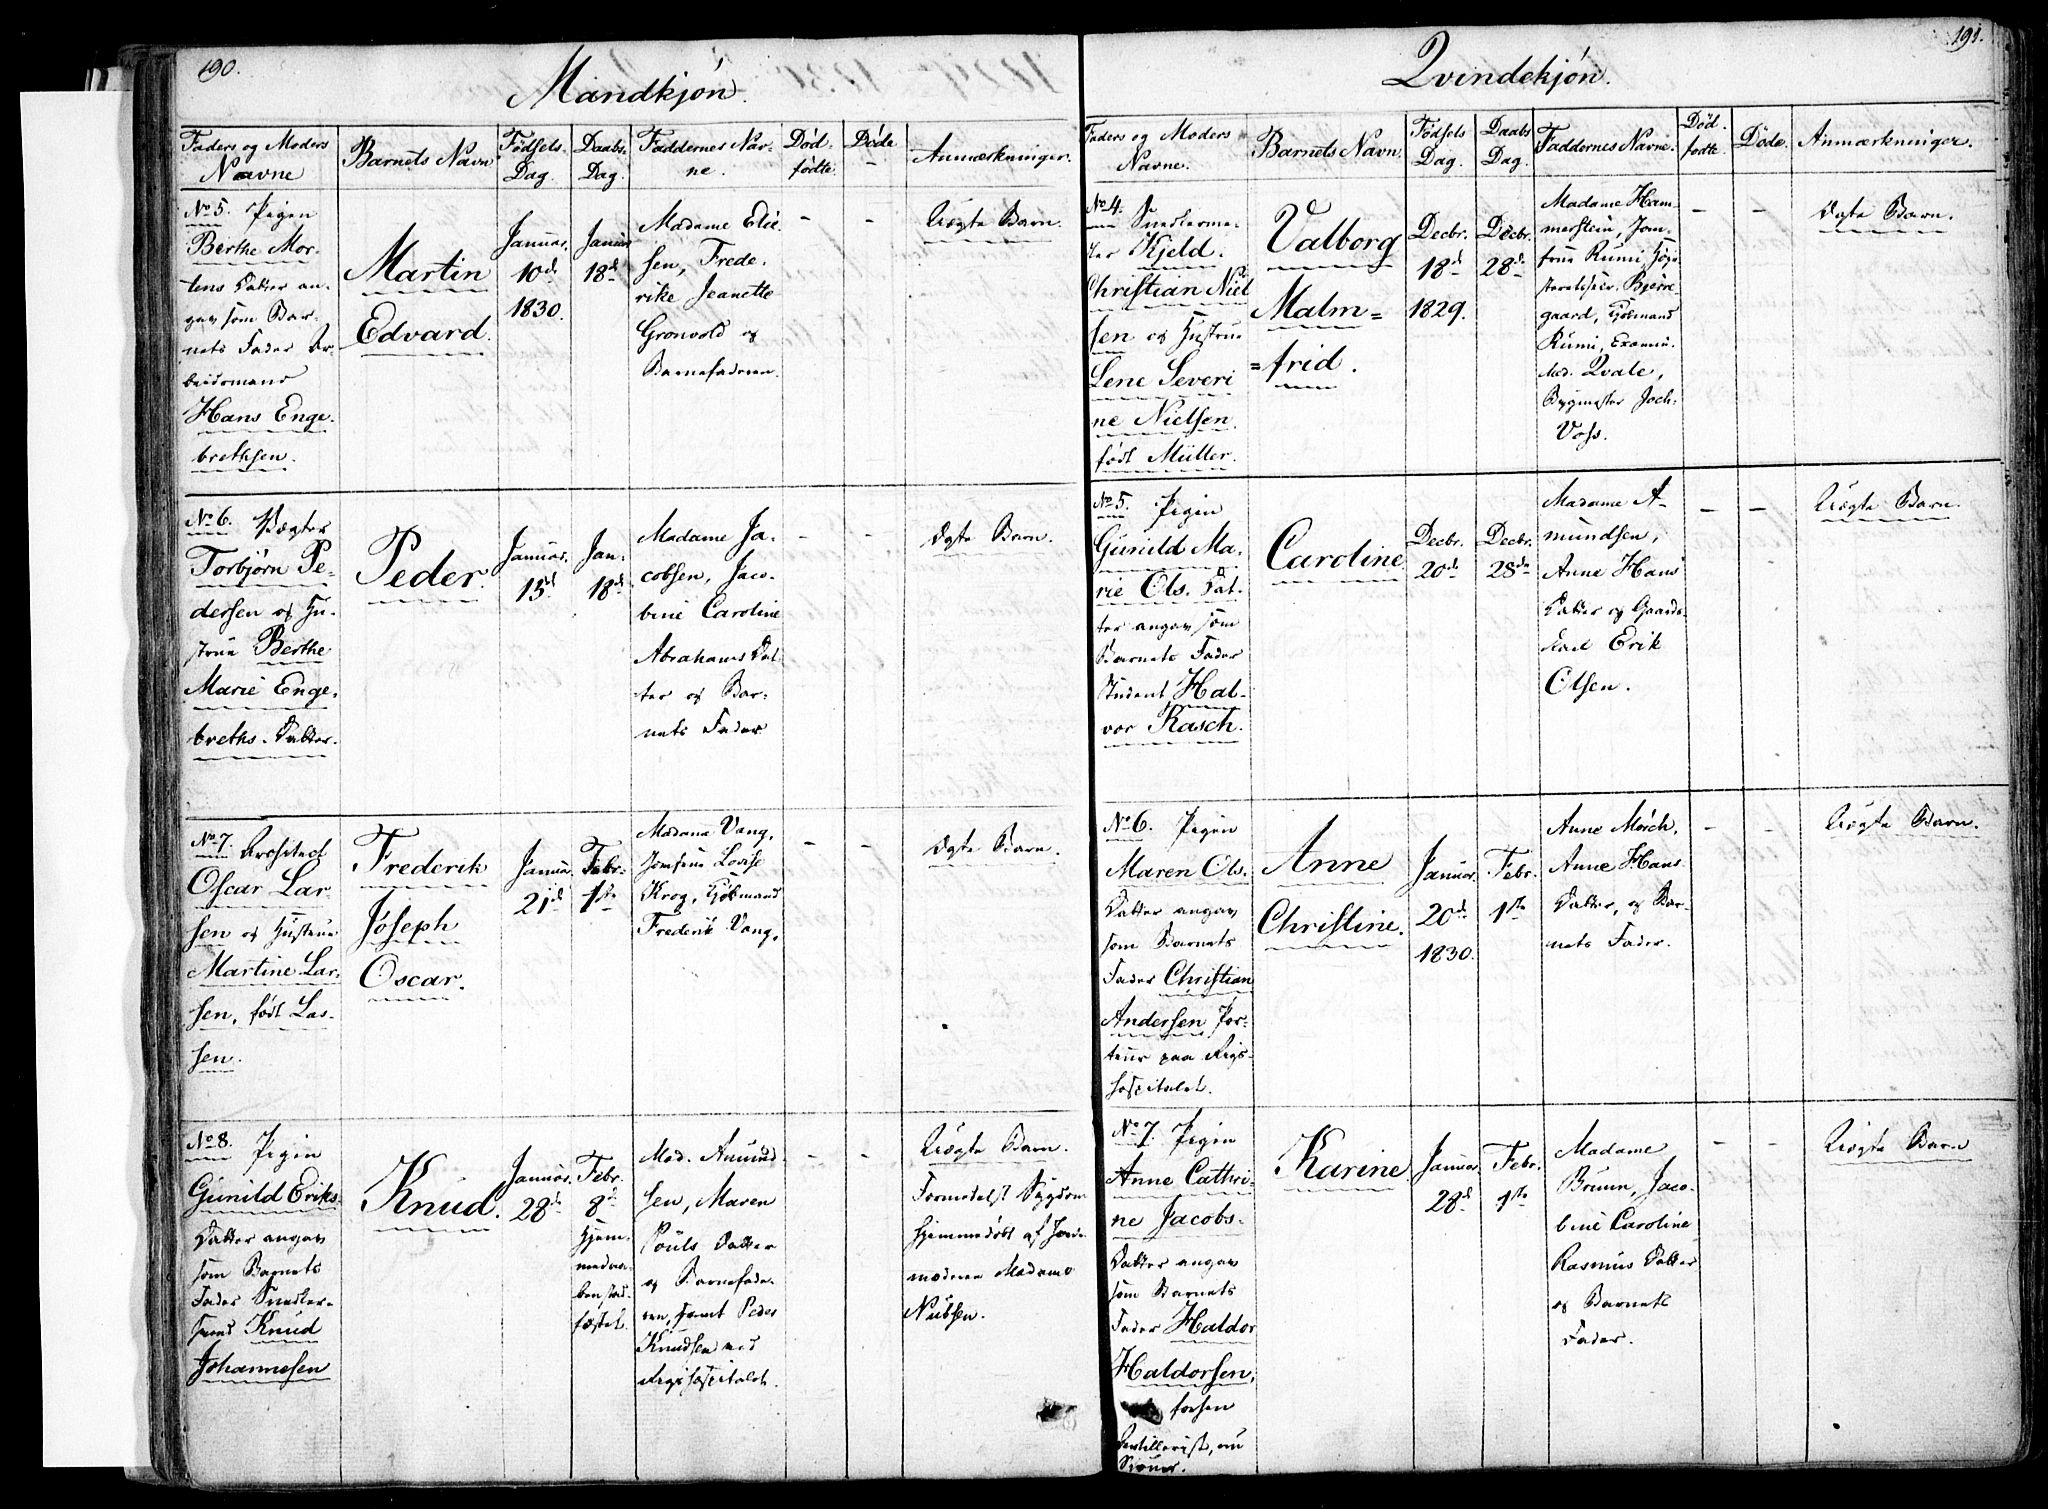 190.
Mandkjøn.
Faders og Moders
Navne
Barnets Navn
Fødsels-
Dag.
Daabs-
Dag.
Faddernes Nav-
ne.
Død-
fødte.
Døde
Anmærkninger.
No 5. Pigen
Berthe Mor-
tens Datter an-
gav som Bar-
nets Fader Ar-
beidsmand
Hans Enge-
brethsen.
Martin
Edvard.
Januar.
10de
1830.
Januar
18de
Madame Elie-
sen, Frede-
rike Jeanette
Grønvold og
Barnefaderen.
-
-
Uægte Barn.
No 6. Vægter
Torbjørn Pe-
dersen og Hu-
strue Berthe
Marie Enge-
breths. Datter.
Peder.
Januar.
15de
Jan.
18de
Madame Ja-
cobsen, Jaco-
bine Caroline
Abrahams Dat-
ter og Bar-
nets Fader
-
-
Ægte Barn.
No 7. Architect
Oscar Lar-
sen og Hustrue
Martine Lar-
sen, født Las-
sen.
Frederik
Joseph
Oscar.
Januar.
21de
Febr.
1ste
Madame Vang,
Jomfrue Lovise
Krog, Kjøbmand
Frederik Vang.
-
-
Ægte Barn.
No 8. Pigen
Gunild Eriks
Datter angav
som Barnets
Fader Snedker-
svend Knud
Johannesen
Knud.
Januar.
28de
Febr.
8de
Hjem-
medaa-
ben stad-
fæstet.
Mad. Amund-
sen, Maren
Pouls Datter
og Barnefade-
ren, samt Peder
Knudsen ved
Rigshospitalet.
-
-
Uægte Barn.
Formedelst Sygdom
hjemmedøbt af Jorde-
moderen Madame
Nubsen.
191.
Qvindekjøn.
Faders og Moders
Navne.
Barnets Navn.
Fødsels
Dag.
Daabs
Dag.
Faddernes Navne.
Død-
fødte.
Døde.
Anmærkninger.
No 4. Snedkerme-
ster Kjeld
Christian Niel-
sen og Hustrue
Lene Severi
ne Nielsen.
født Müller.
Valborg
Malm=
=frid.
Decbr.
18de
1829.
Decbr.
28de
Madame Ham-
merstein, Jom-
frue Rumi, Høie-
steretsadv. Bjerre-
gaard, Kjøbmand
Rumi, Exami.
Med. Qvale,
Bygmester Joch:
Voss.
-
-
Ægte Barn.
No 5. Pigen
Gunild Ma-
rie Ols. Dat-
ter angav som
Barnets Fader
Student Hal-
vor Rasch.
Caroline
Decbr.
20de
Decbr.
28de
Madame A-
mundsen,
Anne Hans
Datter og Gaards-
karl Erik
Olsen.
-
-
Uægte Barn.
No 6. Pigen
Maren Ols.
Datter angav
som Barnets
Fader Christian
Andersen Por-
teur paa Rigs-
hospitalet.
Anne
Christine.
Januar.
20de
1830.
Febr.
1ste
Anne Mørch,
Anne Hans
Datter, og Bar-
nets Fader.
-
-
Uægte Barn.
No 7. Pigen
Anne Cathri-
ne Jacobs-
Datter angav
som Barnets
Fader Haldor
Haldorsen,
forhen
Artillerist, nu
Skouer.
Karine.
Januar.
28de
Febr.
1ste
Madame
Bruun, Jaco-
bine Caroline
Rasmus Datter
og Barnets
Fader.
-
-
Uægte Barn